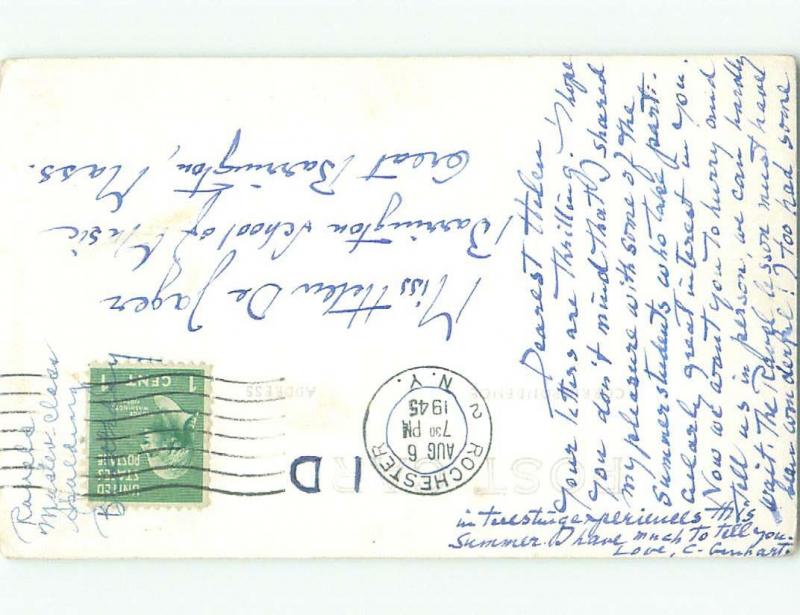 Dearest Helen
Your letters are thrilling. I hope
you don't mind that I shared
my pleasure with some of the
summer students who take parti-
cularly great interest in you.
Now we want you to hurry and
tell us in person, we can hardly
wait. The Ravel lesson must have
been wonderful! I too had some
interesting experiences this
summer. I have much to tell you.
Love, C. Genhart.
Miss Helen De Jager
Barrington School of Music
Great Barrington, Mass.
POST CARD
CORRESPONDENCE
ADDRESS
ROCHESTER
AUG 6
7 30 PM
1945
N.Y.
2
UNITED STATES
POSTAGE
WASHINGTON
1 CENT 1
Master class